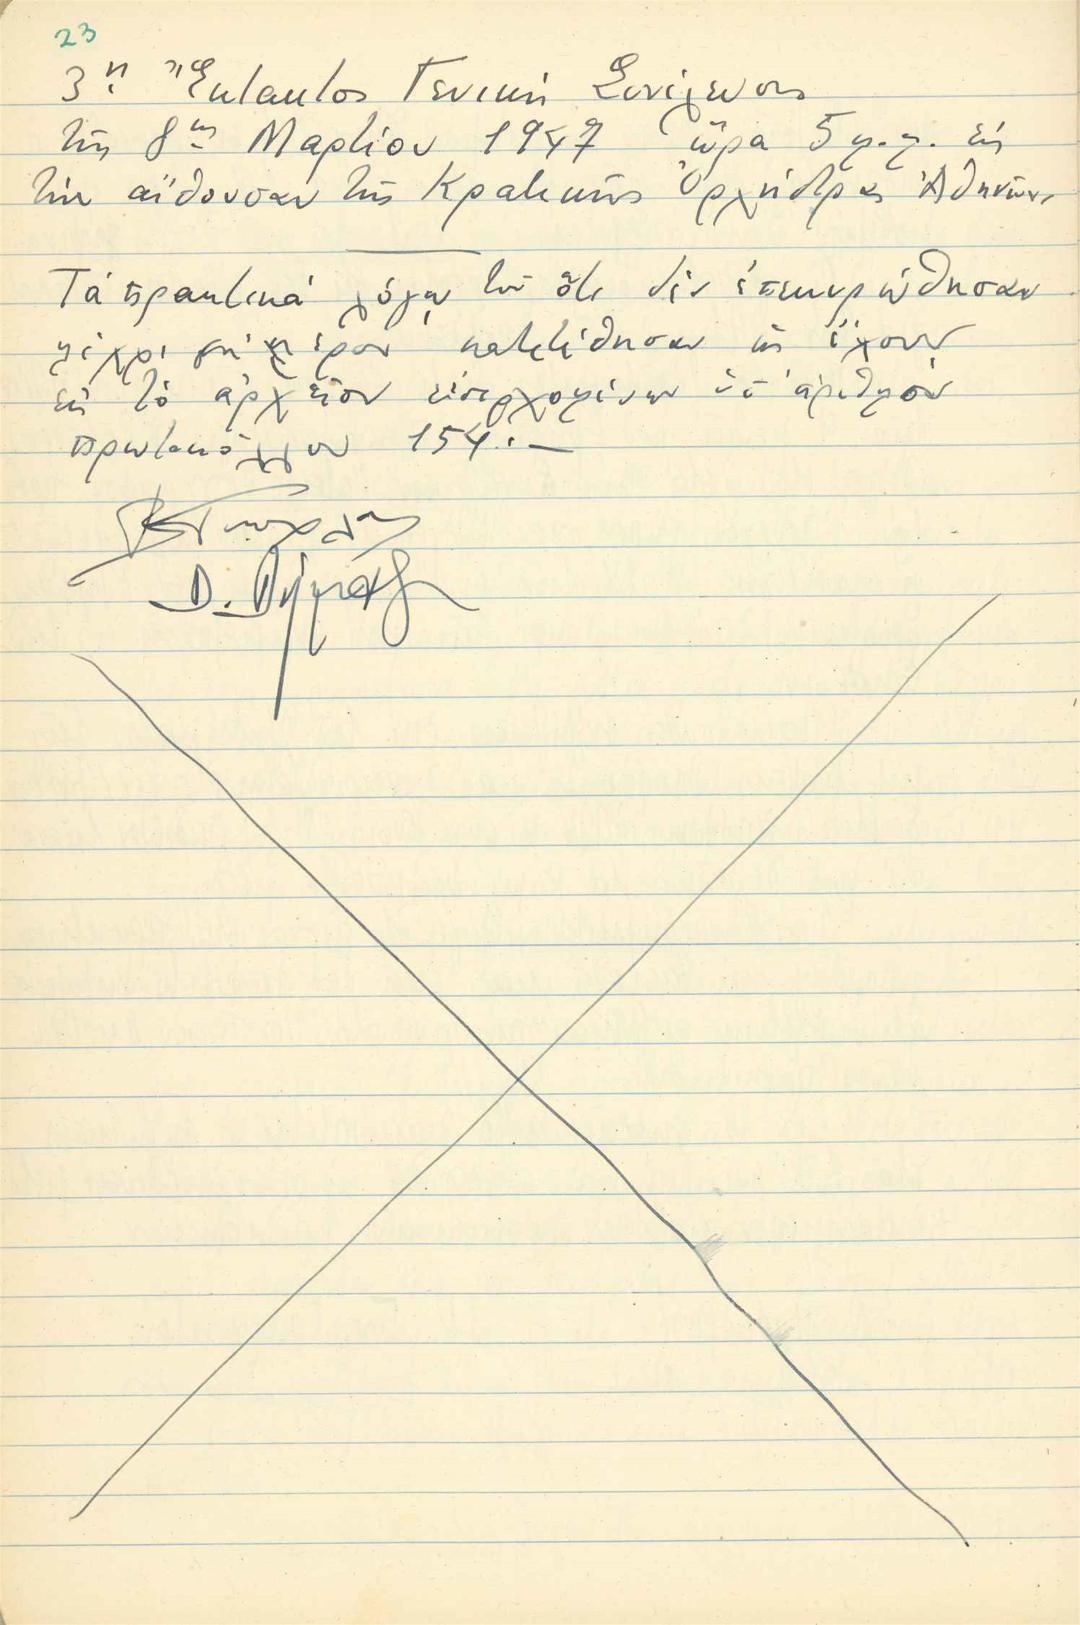 23
3η Ἔκτακτος Γενική Συνέλευσις
τῆς 8ης Μαρτίου 1947 ὥρα 5 μ.μ. εἰς
τὴν αἴθουσαν τῆς Κρατικῆς Ὀρχήστρας Ἀθηνῶν.
Τά πρακτικά λόγῳ τοῦ ὅτι δέν ἐπεκυρώθησαν
μέχρι σήμερον κατετέθησαν ὡς ἔχουν
εἰς τό ἀρχεῖον εἰσερχομένων ὑπ' ἀριθμόν
πρωτοκόλλου 154.-